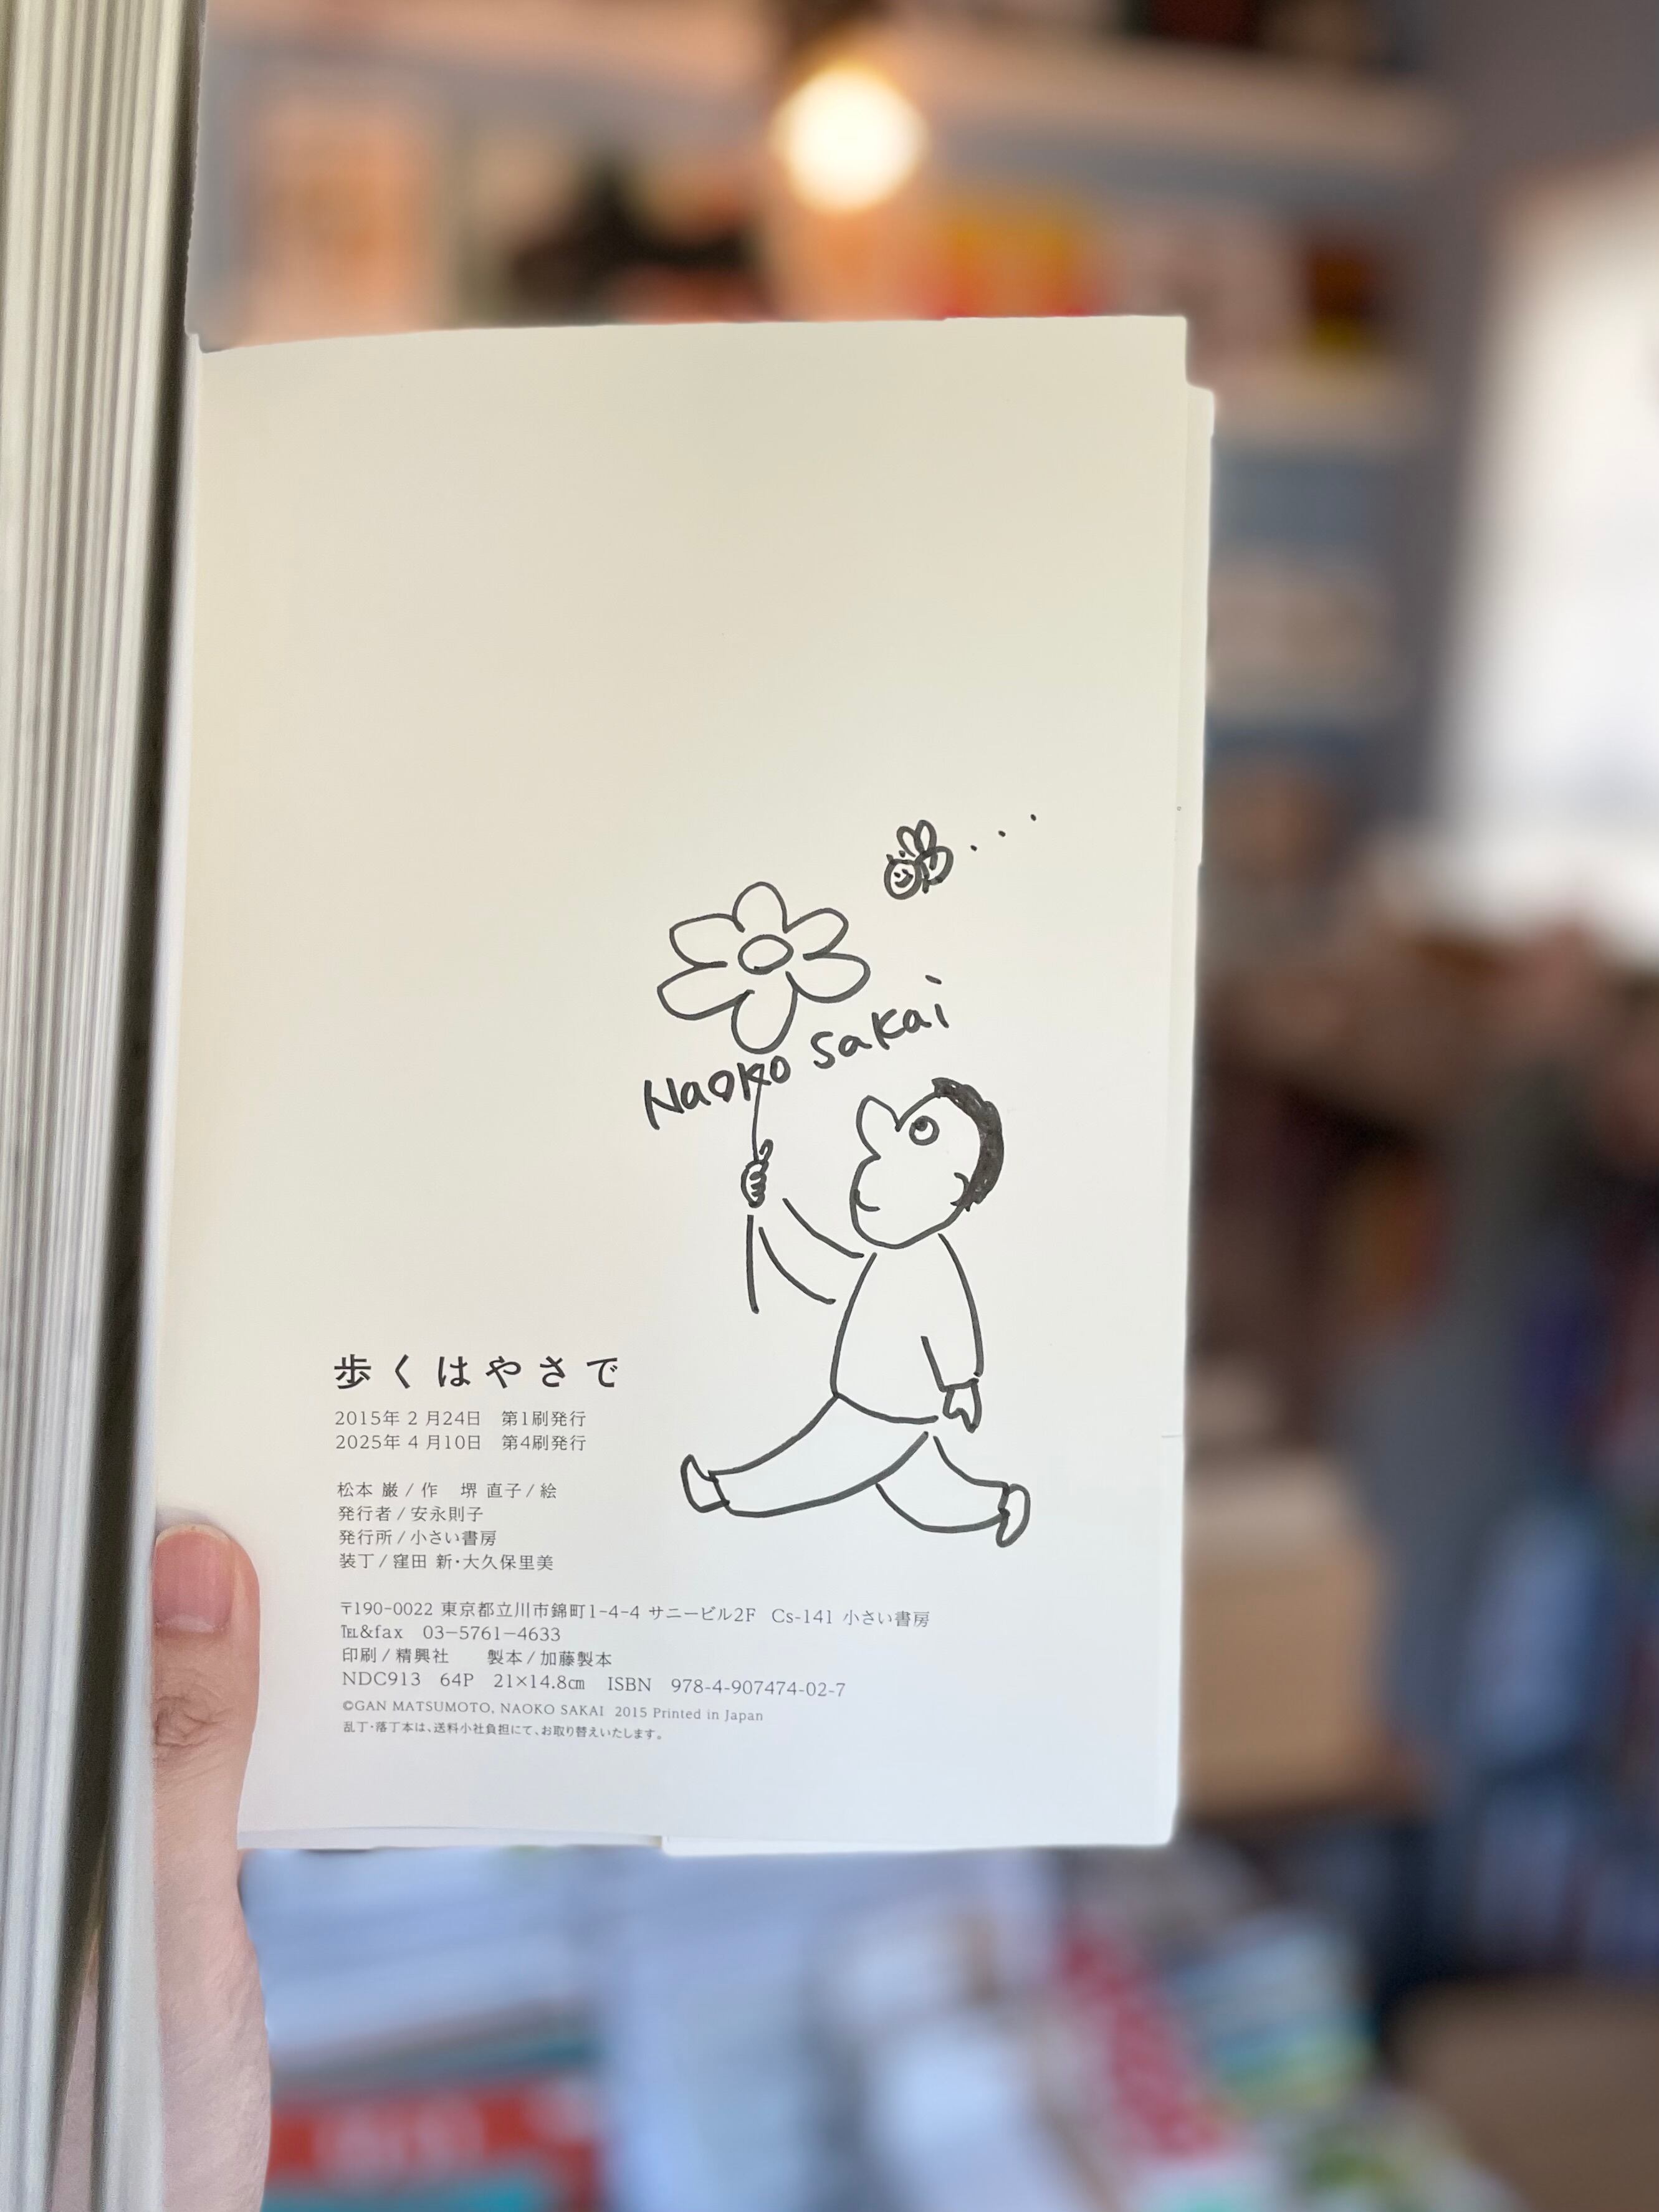 Naoko Sakai
歩くはやさで
2015年2月24日　第1刷発行
2025年4月10日　第4刷発行
松本 巌/作　堺 直子/絵
発行者/安永則子
発行所/小さい書房
装丁/窪田 新・大久保里美
〒190-0022 東京都立川市錦町1-4-4 サニービル2F　Cs-141 小さい書房
℡&fax　03-5761-4633
印刷/精興社　　製本/加藤製本
NDC913　64P　21×14.8㎝　ISBN　978-4-907474-02-7
©GAN MATSUMOTO, NAOKO SAKAI 2015 Printed in Japan
乱丁・落丁本は、送料小社負担にて、お取り替えいたします。